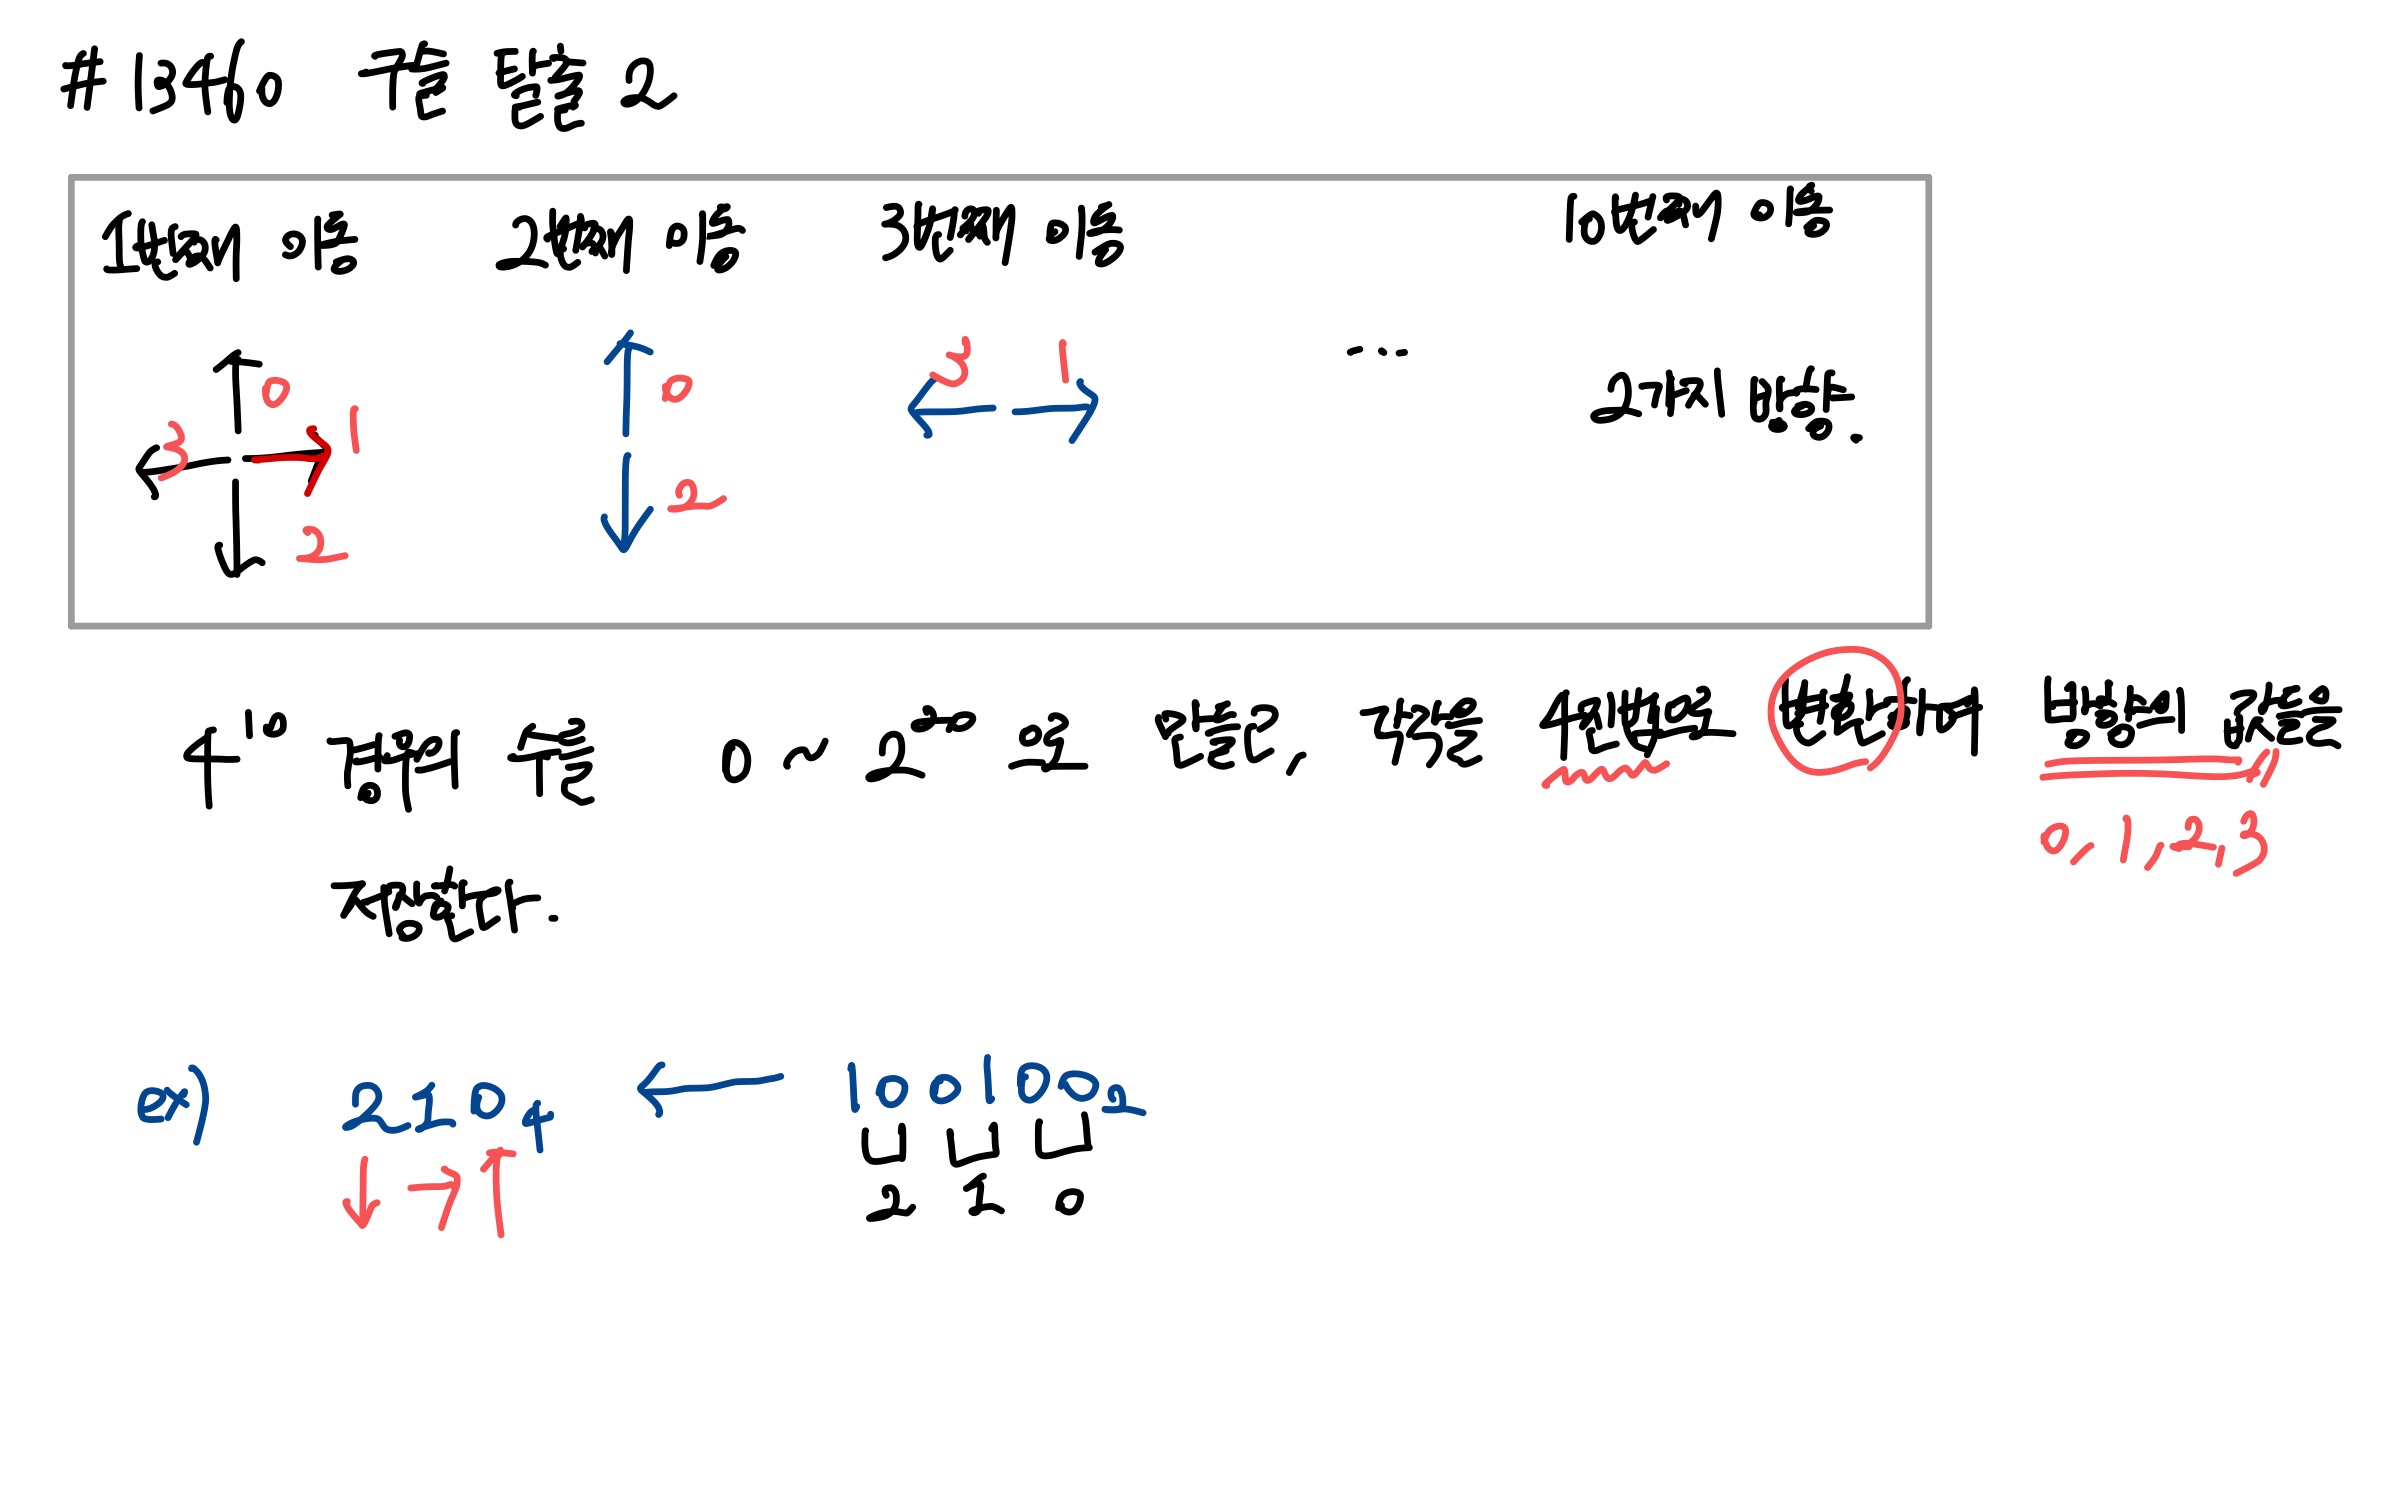 #13460 구슬 탈출 2
1번째 이동 2번째 이동 3번째 이동 10번째 이동
0 1 2 3 0 2 3 1 ... 2가지 방향.
4¹⁰ 경우의 수를 0 ~ 2²⁰ 으로 만들고, 각각을 4진법으로 변환하여 방향의 값들을
0, 1, 2, 3
저장한다.
ex) 210₄ ← 100100₂
↓ → ↑ 2 1 0